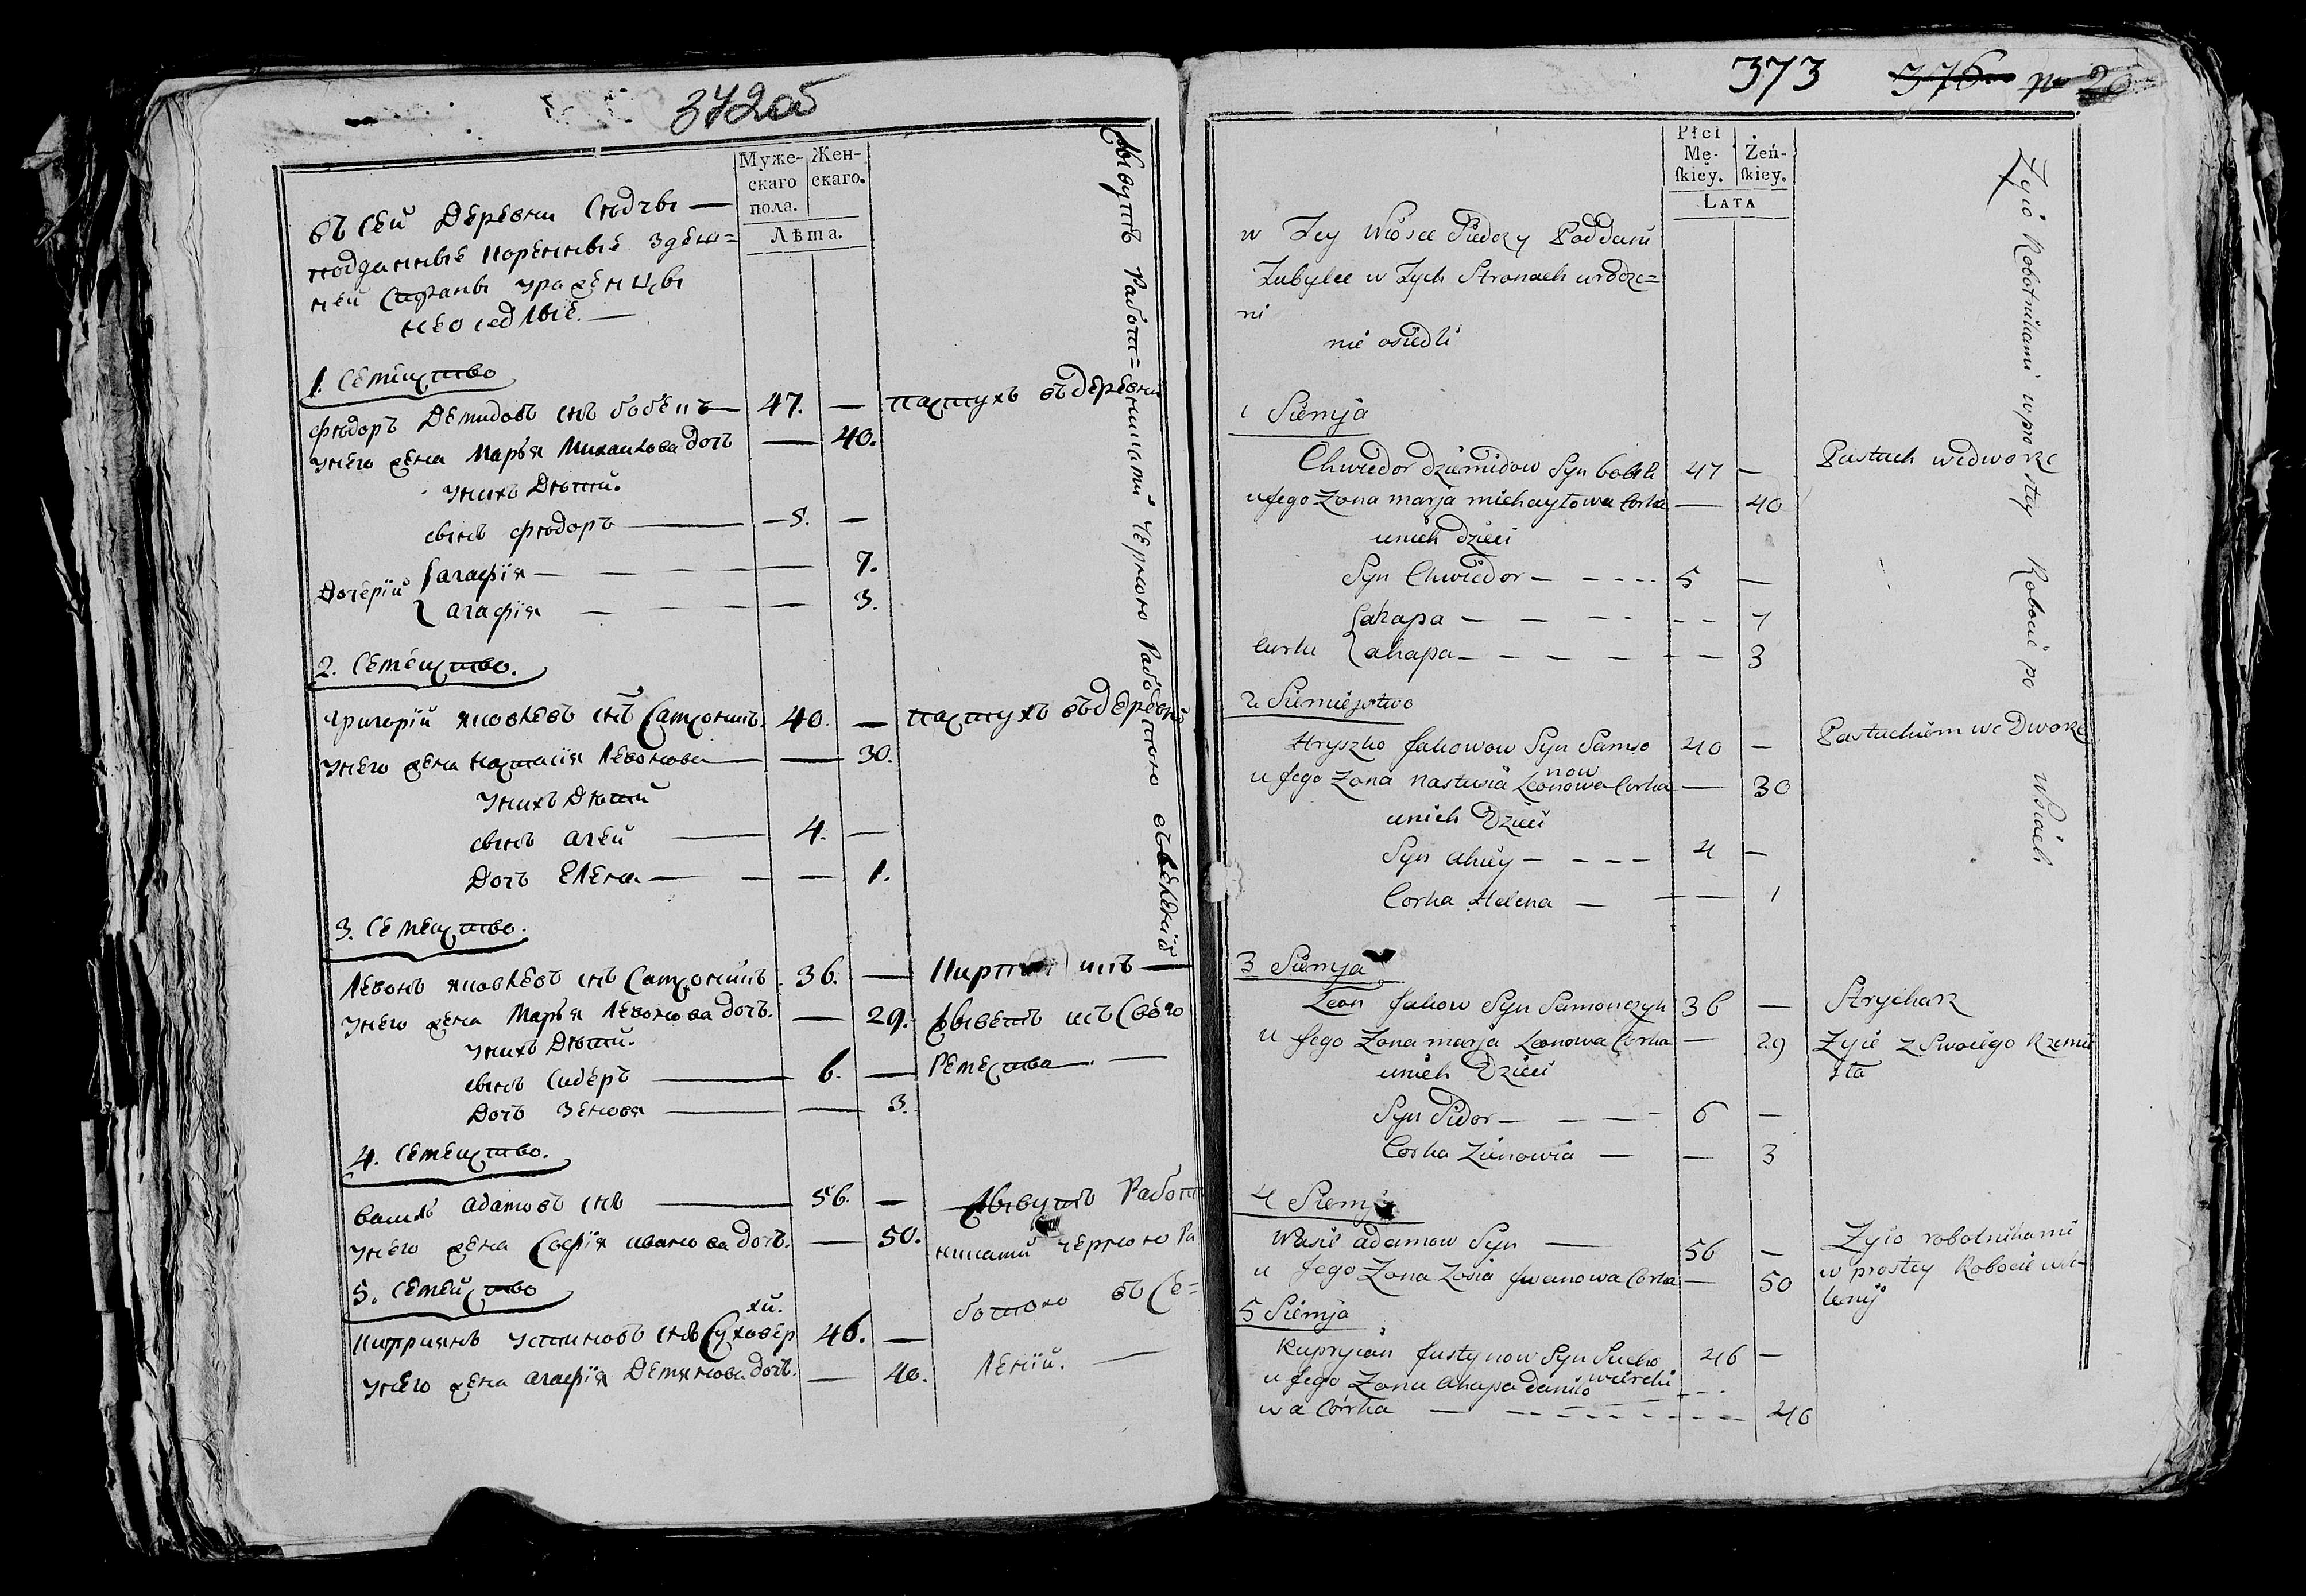 372об
Муже-
скаго
пола.
Жен-
скаго.
Лѣта.
въ сей Деревни Сѣдчы —
подданные коренные здеш=
ней Стараны уражѣнцы
неоседлые. —
1. Семейство
Фѣдоръ Демидовъ снъ бобепъ — 47. — пастухъ въ деревни
унего жена Марья Михайлова дочь — 40.
Унихъ Дѣти.
сынъ Фѣдоръ — 5. —
Дочерій { агафія — 7.
{ агафія — 3.
2. Семейство.
Григорій яковлевъ снъ Самсоникъ. 40. — пастухъ въ деревни
унего жена настасія Левонова — 30.
Унихъ Дѣти
сынъ агей — 4. —
Дочь Елена — 1.
3. Семейство.
Левонъ яковлевъ снъ Самсоникъ. 36. — никъ —
унего жена Марья Левонова дочь. — 29. живетъ изъ Своего
Унихъ Дѣти.
сынъ Сидеръ — 6. — Ремества. —
Дочь Зеновя — 3.
4. Семейство.
Василь адамовъ снъ — 56. — живутъ Работ
унего жена Софія иванова дочь. — 50. никами черною Ра
5. Семейство
ботою въ Се=
хи.
Киприянъ устиновъ снъ Суховер 46. —
унего жена агафія Демянова дочь. — 40. леній. —
живутъ Работ=никами черною Работою въ Селеній
373 376 20
Płci
Mę-
ſkiey.
Żeń-
ſkiey.
Lata
w Tey Wiosce Siedczy Poddani
Tubylce w Tych Stronach urodze=
ni
nie osiedli
1 Siemja
Chwiedor dziemidow Syn bobel 47 — Pastuch wedworze
u Jego Zona marja michayłowa Corka — 40
unich dzieci
Syn Chwiedor — 5 —
{ ahapa — 7
Curki { ahapa — 3
2 Siemiejstwo
Hryszko Jakowow Syn Samso 40 — Pastuchiem we Dworze
now
u Jego Zona nastusia Leonowa Corka — 30
unich Dzieci
Syn ahiey — 4 —
Corka Helena — 1
3 Siemja
Leon Jakow Syn Samonczyk 36 — Strycharz
u Jego Zona marja Leonowa Corka — 29 Zyie z Swoiego Rzemie
unich Dzieci
sła
Syn Sidor — 6 —
Corka Zienowia — 3
4 Siemja
Wasil adamow Syn — 56 — Zyio robotnikami
u Jego Zona Zosia Jwanowa Corka — 50 w prostey Robocie wsie-
lenij
5 Siemja
Kuprycian Justynow Syn Sucho 46 —
wierchi
u Jego Zona ahapa daniło
wa Córka — 40
Zyio Robotnikami w prostey Robocie po Wsiach